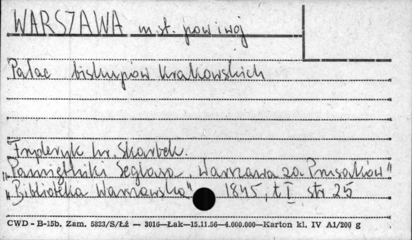 WARSZAWA m.st. pow i woj
Pałac biskupów Krakowskich
Fryderyk hr. Skarbek.
"Pamiętniki Seglasa, Warszawa za Prusaków"
"Biblioteka Warszawska" 1845, t I str 25
CWD - B-15b. Zam. 5823/S/Łź — 3016—Łak—15.11.56—4.000.000—Karton kl. IV A1/200 g